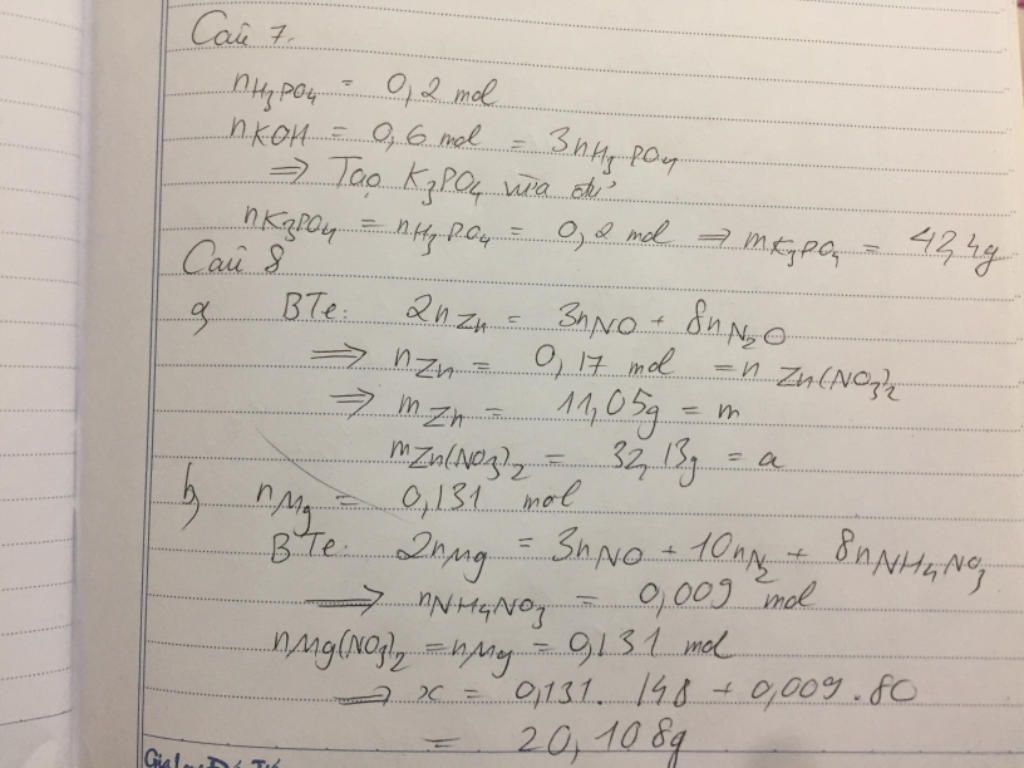 Câu 7.
nH3PO4 = 0,2 mol
nKOH = 0,6 mol = 3nH3PO4
⇒ Tạo K3PO4 vừa đủ
nK3PO4 = nH3PO4 = 0,2 mol ⇒ mK3PO4 = 42,4g
Câu 8
a, BTe: 2nZn = 3nNO + 8nN2O
⇒ nZn = 0,17 mol = n Zn(NO3)2
⇒ mZn = 11,05g = m
mZn(NO3)2 = 32,13g = a
b, nMg = 0,131 mol
BTe: 2nMg = 3nNO + 10nN2 + 8nNH4NO3
⇒ nNH4NO3 = 0,009 mol
nMg(NO3)2 = nMg = 0,131 mol
⇒ x = 0,131. 148 + 0,009.80
= 20,108g